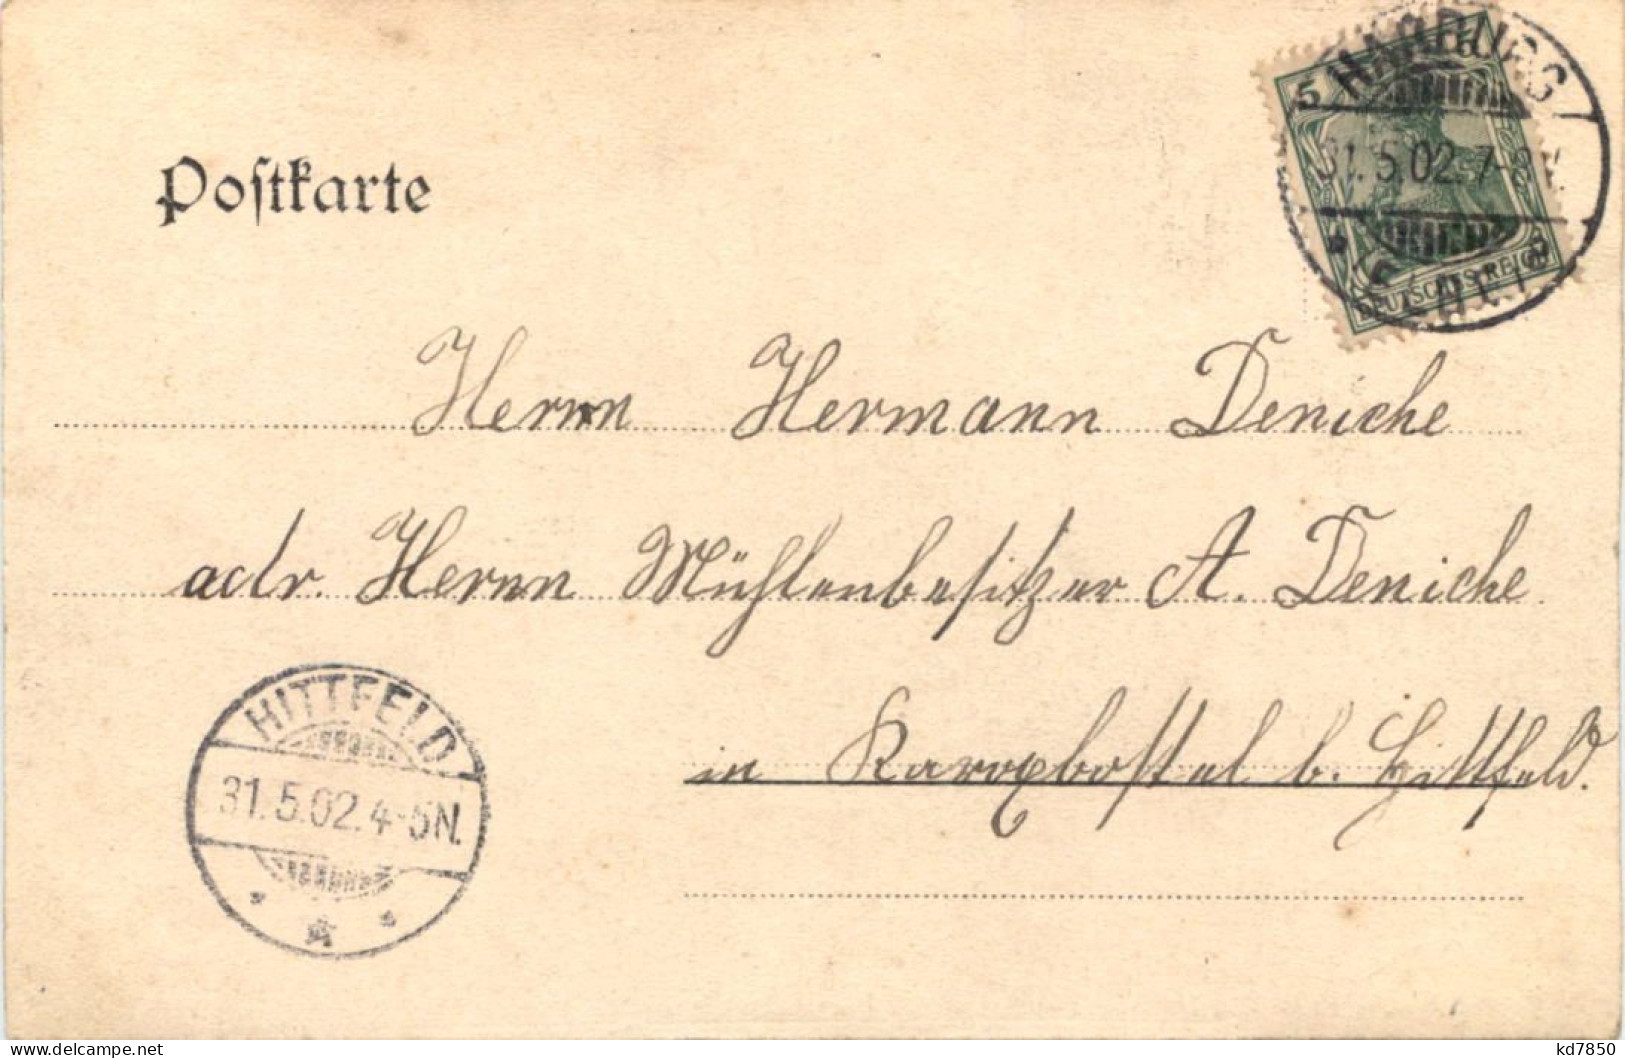 Postkarte
HARBURG
5
31.5.02.7-8V.
DEUTSCHES REICH
Herrn Hermann Deniche
adr. Herrn Mühlenbesitzer A. Deniche
in Karoxbostel b. Hittfeld.
HITTFELD
31.5.02.4-5N.
delcampe.net
kd7850